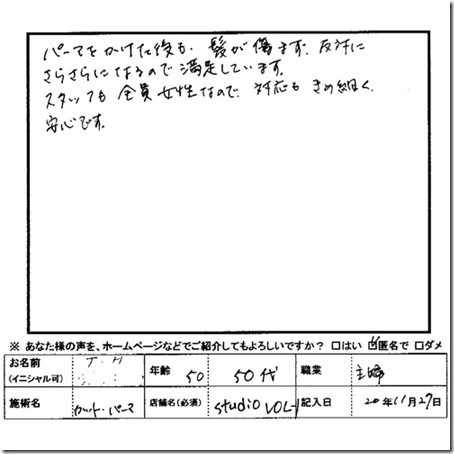 パーマをかけた後も、髪が傷まず、反対に
さらさらになるので満足しています。
スタッフも全員女性なので、対応もきめ細かく、
安心です。
※ あなた様の声を、ホームページなどでご紹介してもよろしいですか？ □はい ☑匿名で □ダメ
お名前 (イニシャル可) T.H 年齢 50 50代 職業 主婦
施術名 カット・パーマ 店舗名(必須) studio VOL-1 記入日 20年11月27日